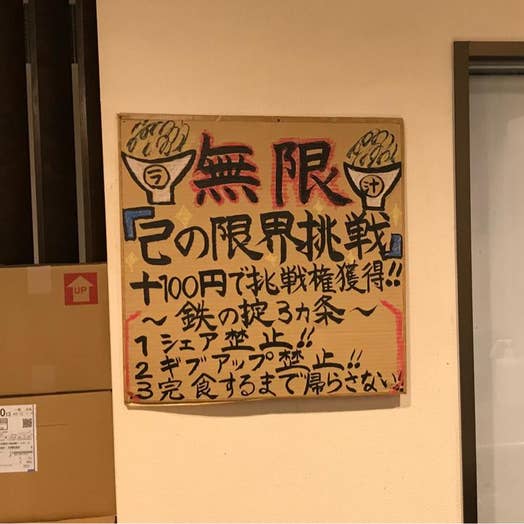 ラ
無限
汁
『己の限界挑戦』
+100円で挑戦権獲得!!
〜鉄の掟3ヵ条〜
1 シェア禁止!!
2 ギブアップ禁止!!
3 完食するまで帰らさない!!
UP